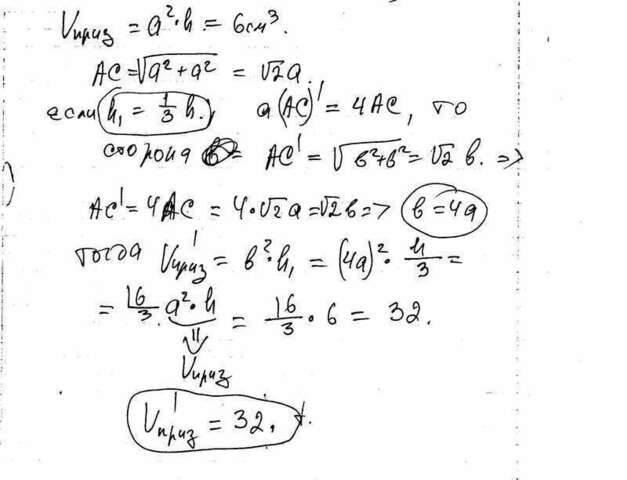 Vприз = a²·h = 6см³.
AC = √a²+a² = √2a.
если h₁ = 1/3 h., а (AC)' = 4AC, то
сторона в = AC' = √в²+в² = √2 в. =>
AC' = 4AC = 4·√2a = √2в => в = 4a
тогда V'приз = в²·h₁ = (4a)²·h/3 =
= 16/3 a²·h = 16/3 · 6 = 32.
Vприз
V'приз = 32.